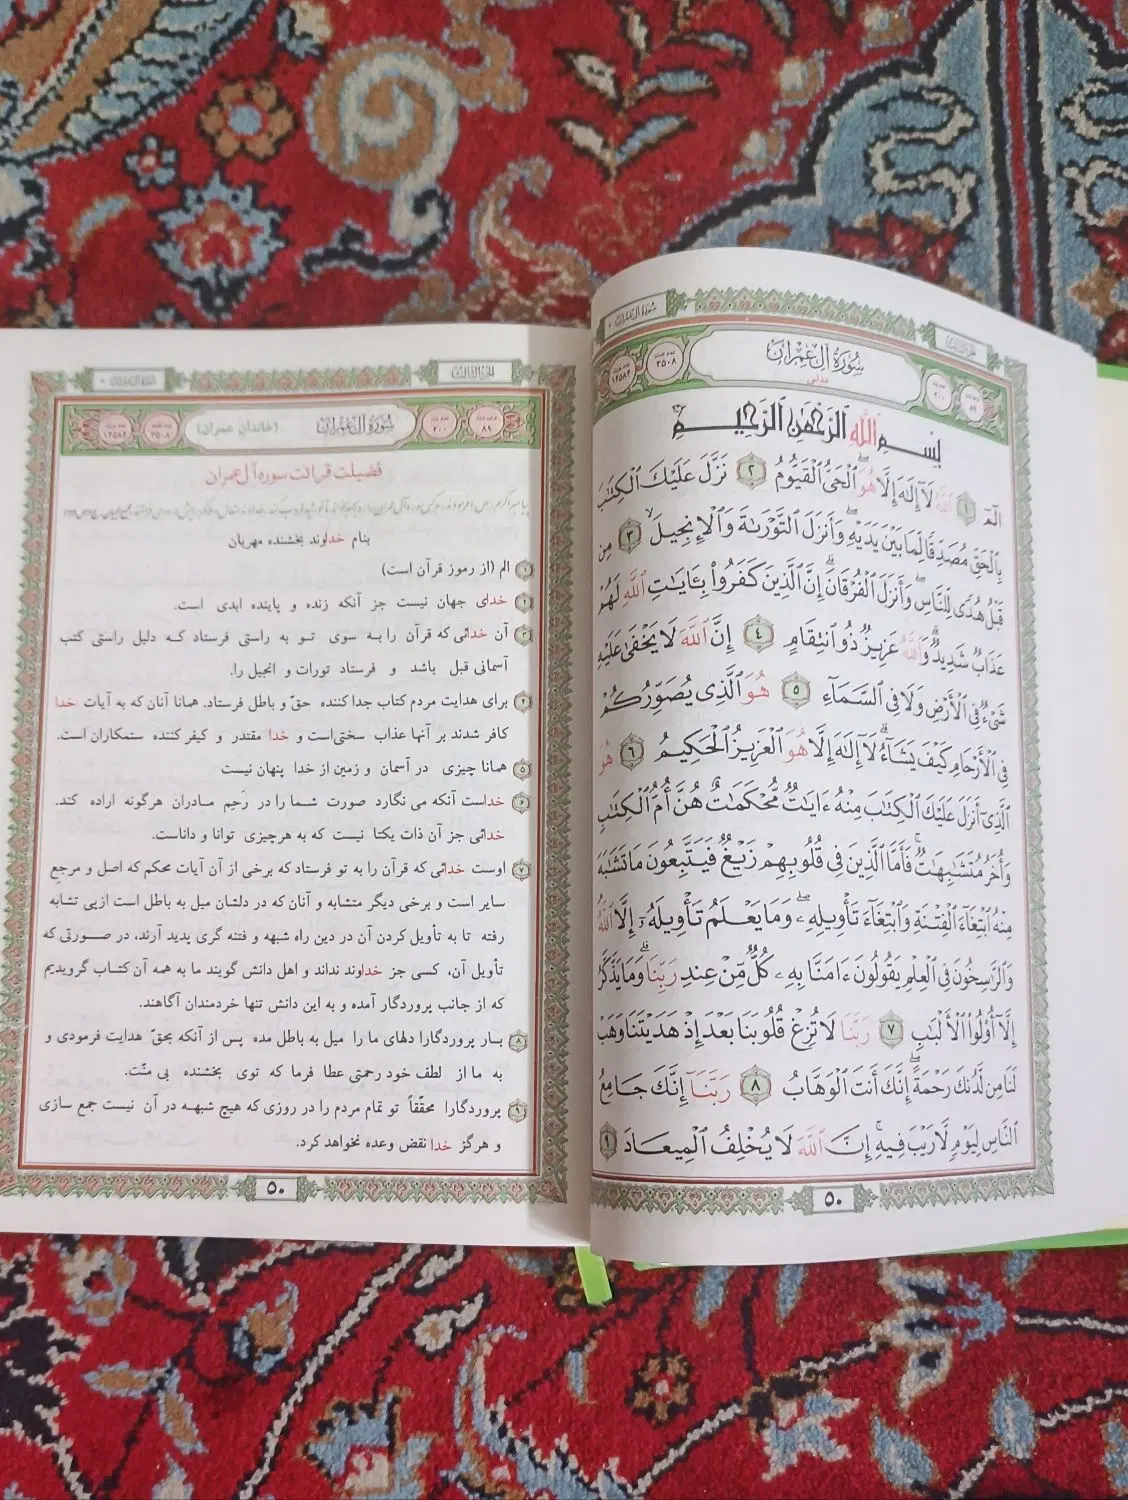 سُورَةُ آلِ عِمْرَان
الجزء الثالث
سُورَةُ آلِ عِمْرَان
مدنی
٣٥٠٨
١٤٥٨٤
٢٠٠
٨٩
بِسْمِ اللَّهِ الرَّحْمَٰنِ الرَّحِيمِ
الٓمٓ ١ اللَّهُ لَآ إِلَٰهَ إِلَّا هُوَ الْحَيُّ الْقَيُّومُ ٢ نَزَّلَ عَلَيْكَ الْكِتَٰبَ
بِالْحَقِّ مُصَدِّقًا لِّمَا بَيْنَ يَدَيْهِ وَأَنزَلَ التَّوْرَىٰةَ وَالْإِنجِيلَ ٣ مِن
قَبْلُ هُدًى لِّلنَّاسِ وَأَنزَلَ الْفُرْقَانَ إِنَّ الَّذِينَ كَفَرُوا بِـَٔايَٰتِ اللَّهِ لَهُمْ
عَذَابٌ شَدِيدٌ وَاللَّهُ عَزِيزٌ ذُو انتِقَامٍ ٤ إِنَّ اللَّهَ لَا يَخْفَىٰ عَلَيْهِ
شَيْءٌ فِي الْأَرْضِ وَلَا فِي السَّمَآءِ ٥ هُوَ الَّذِي يُصَوِّرُكُمْ
فِي الْأَرْحَامِ كَيْفَ يَشَآءُ لَآ إِلَٰهَ إِلَّا هُوَ الْعَزِيزُ الْحَكِيمُ ٦ هُوَ
الَّذِيٓ أَنزَلَ عَلَيْكَ الْكِتَٰبَ مِنْهُ ءَايَٰتٌ مُّحْكَمَٰتٌ هُنَّ أُمُّ الْكِتَٰبِ
وَأُخَرُ مُتَشَٰبِهَٰتٌ فَأَمَّا الَّذِينَ فِي قُلُوبِهِمْ زَيْغٌ فَيَتَّبِعُونَ مَا تَشَٰبَهَ
مِنْهُ ابْتِغَآءَ الْفِتْنَةِ وَابْتِغَآءَ تَأْوِيلِهِ وَمَا يَعْلَمُ تَأْوِيلَهُۥٓ إِلَّا اللَّهُ
وَالرَّاسِخُونَ فِي الْعِلْمِ يَقُولُونَ ءَامَنَّا بِهِ كُلٌّ مِّنْ عِندِ رَبِّنَا وَمَا يَذَّكَّرُ
إِلَّآ أُو۟لُوا الْأَلْبَٰبِ ٧ رَبَّنَا لَا تُزِغْ قُلُوبَنَا بَعْدَ إِذْ هَدَيْتَنَا وَهَبْ
لَنَا مِن لَّدُنكَ رَحْمَةً إِنَّكَ أَنتَ الْوَهَّابُ ٨ رَبَّنَآ إِنَّكَ جَامِعُ
النَّاسِ لِيَوْمٍ لَّا رَيْبَ فِيهِ إِنَّ اللَّهَ لَا يُخْلِفُ الْمِيعَادَ ٩
٥٠
الجزء الثالث
سُورَةُ آلِ عِمْرَان
سُورَةُ آلِ عِمْرَان
(خاندان عمران)
٣٥٠٨
١٤٥٨٤
٢٠٠
٨٩
فضیلت قرائت سوره آل عمران
بنام خداوند بخشنده مهربان
۱ الم (از رموز قرآن است)
۲ خدای جهان نیست جز آنکه زنده و پاینده ابدی است.
۳ آن خدائی که قرآن را به سوی تو به راستی فرستاد که دلیل راستی کتب
آسمانی قبل باشد و فرستاد تورات و انجیل را.
۴ برای هدایت مردم کتاب جدا کننده حقّ و باطل فرستاد. همانا آنان که به آیات خدا
کافر شدند بر آنها عذاب سختی است و خدا مقتدر و کیفر کننده ستمکاران است.
۵ همانا چیزی در آسمان و زمین از خدا پنهان نیست
۶ خداست آنکه می نگارد صورت شما را در رَحِم مادران هرگونه اراده کند.
خدائی جز آن ذات یکتا نیست که به هرچیزی توانا و داناست.
۷ اوست خدائی که قرآن را به تو فرستاد که برخی از آن آیات محکم که اصل و مرجع
سایر است و برخی دیگر متشابه و آنان که در دلشان میل به باطل است ازپی تشابه
رفته تا به تأویل کردن آن در دین راه شبهه و فتنه گری پدید آرند، در صورتی که
تأویل آن، کسی جز خداوند نداند و اهل دانش گویند ما به همه آن کتاب گرویدیم
که از جانب پروردگار آمده و به این دانش تنها خردمندان آگاهند.
۸ بار پروردگارا دلهای ما را میل به باطل مده پس از آنکه بحقّ هدایت فرمودی و
به ما از لطف خود رحمتی عطا فرما که توی بخشنده بی منّت.
۹ پروردگارا محقّقاً تو تمام مردم را در روزی که هیچ شبهه در آن نیست جمع سازی
و هرگز خدا نقض وعده نخواهد کرد.
٥٠